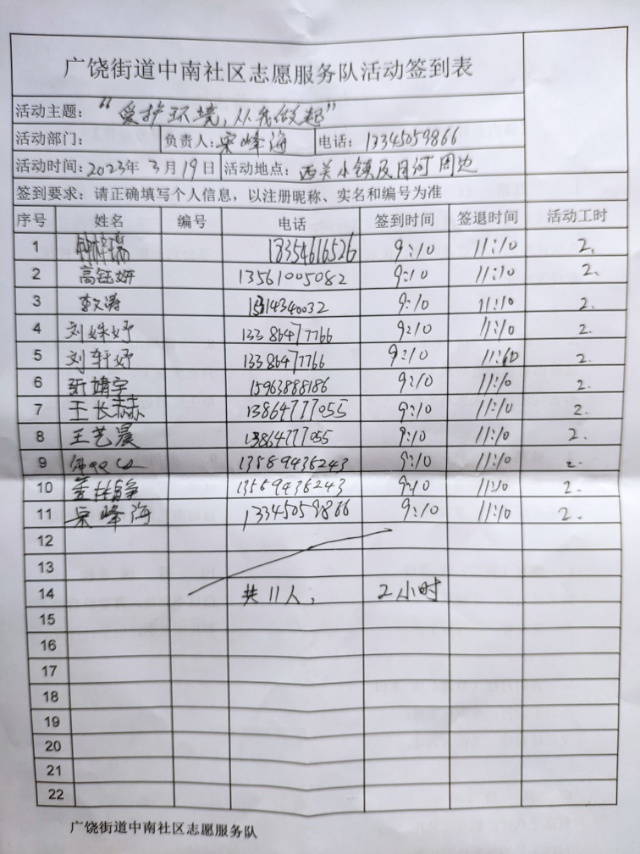 广饶街道中南社区志愿服务队活动签到表
活动主题：“爱护环境，从我做起”
活动部门： 负责人：宋峰海 电话：13345059866
活动时间：2023年3月19日 活动地点：西关小镇及月河周边
签到要求：请正确填写个人信息，以注册昵称、实名和编号为准
序号 姓名 编号 电话 签到时间 签退时间 活动工时
1 18354616526 9:10 11:10 2.
2 高钰妍 13561005082 9:10 11:10 2.
3 李文涛 9:10 11:10 2.
4 刘姝妤 13386477766 9:10 11:10 2.
5 刘轩妤 13386477766 9:10 2.
6 靖宇 15963888186 9:10 11:10 2.
7 王长赫 13864777055 9:10 11:10 2.
8 王艺晨 13864777055 9:10 11:10 2.
9 13589436243 9:10 11:10 2.
10 13589436243 9:10 11:10 2.
11 宋峰海 13345059866 9:10 11:10 2.
12
13
14 共11人， 2小时
15
16
17
18
19
20
21
22
广饶街道中南社区志愿服务队